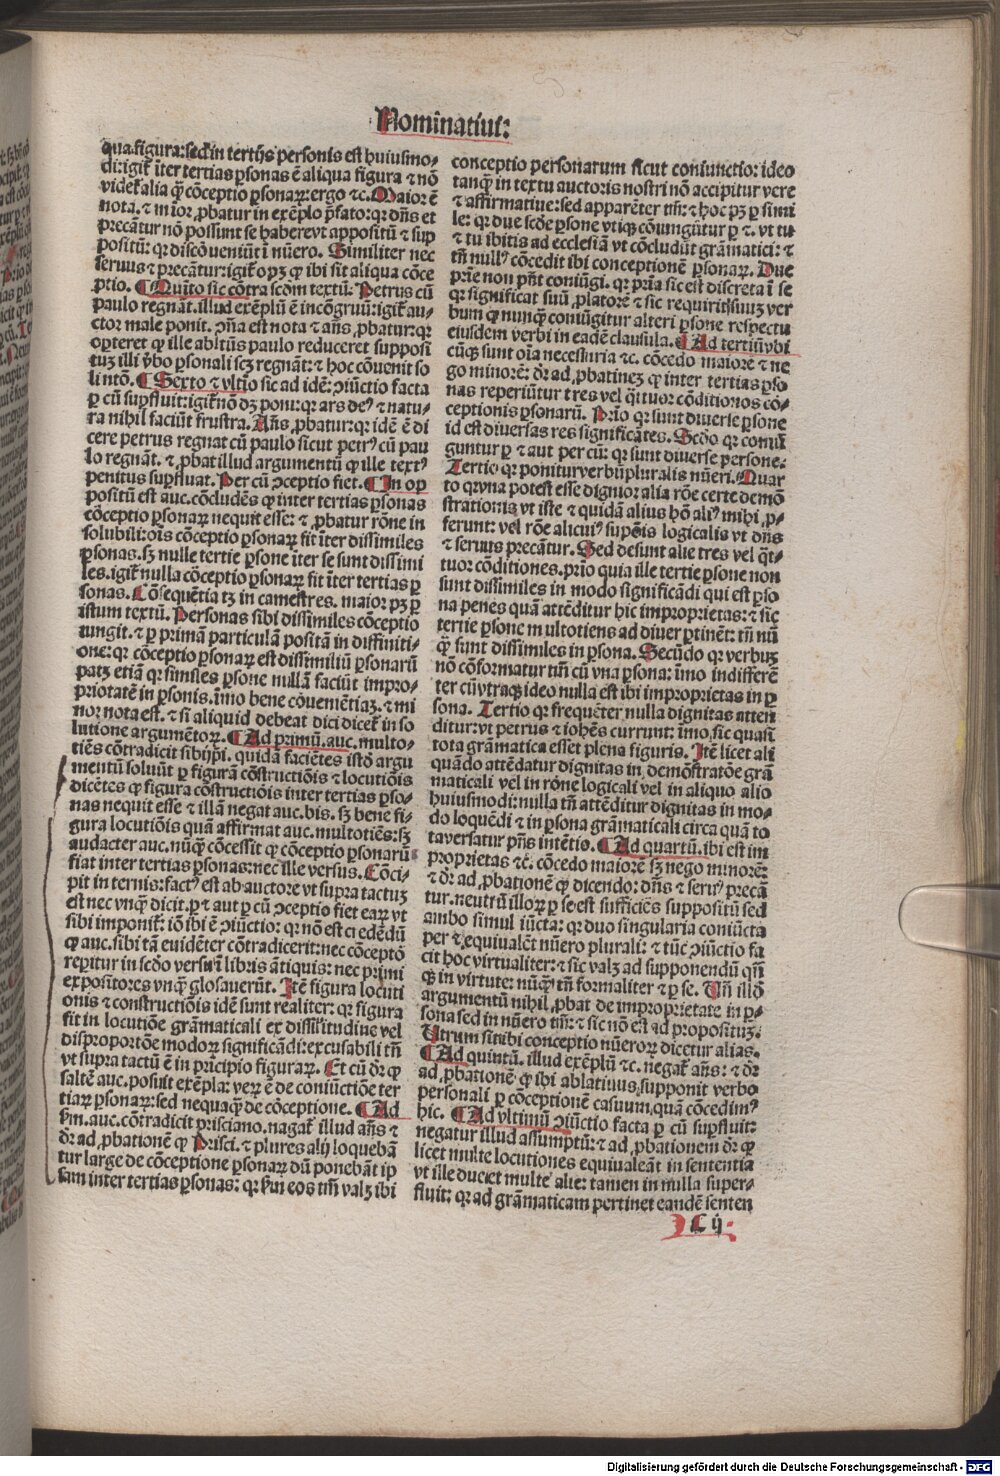 Nominatiuꝰ:
qua figura: sed in tertijs personis est huiusmo-
di: igit̃ iter tertias ꝑsonas ē aliqua figura ⁊ nō
videt̃ alia ꝙ̃ cōceptio ꝑsonaꝝ: ergo ⁊c. Maior ē
nota. ⁊ mīor ꝓbatur in exēplo p̄fato: qꝛ dn̄s et
precātur nō possunt se habere vt appositū ⁊ sup
positū: qꝛ discōueniūt ī nūero. Similiter nec
seruus ⁊ precātur: igit̃ opꝫ ꝙ ibi sit aliqua cōce
ptio. ¶ Quīto sic cōtra scd̄m textū: Petrus cū
paulo regnāt. illud exēplū ē incōgruū: igit̃ au-
ctor male ponit. ↄ̄ña est nota ⁊ an̄s ꝓbatur: qꝛ
oporteret ꝙ ille ablt̄ūs paulo reduceret supposi
tuꝫ illi v̄bo ꝑsonali scꝫ regnāt: ⁊ hoc cōuenit so
li ntō. ¶ Sexto ⁊ vltīo sic ad idē: ↄiūctio facta
ꝑ cū supfluit: igit̃ nō dꝫ poni: qꝛ ars deꝰ ⁊ natu-
ra nihil faciūt frustra. An̄s ꝓbatur: qꝛ idē ē di
cere petrus regnat cū paulo sicut petrꝰ cū pau
lo regnāt. ⁊ ꝓbat illud argumentū ꝙ ille textꝰ
penitus suꝑfluat. Per cū ↄceptio fiet. ¶ In op
positū est auc. cōcludēs ꝙ inter tertias ꝑsonas
cōceptio ꝑsonaꝝ nequit esse: ⁊ ꝓbatur rōne in
solubili: oīs cōceptio ꝑsonaꝝ fit īter dissimiles
ꝑsonas. sꝫ nulle tertie ꝑsone īter se sunt dissimi
les. igit̃ nulla cōceptio ꝑsonaꝝ fit īter tertias ꝑ
sonas. Cōsequētia tꝫ in camestres. maior pꝫ ꝑ
istum textū. Personas sibi dissimiles cōceptio
iungit. ⁊ ꝑ primā particulā positā in diffiniti-
one: qꝛ cōceptio ꝑsonaꝝ est dissimiliū ꝑsonarū
patꝫ etiā qꝛ similes ꝑsone nullā faciūt impro-
priotatē in ꝑsonis. imo bene cōueniētiaꝫ. ⁊ mi
nor nota est. ⁊ si aliquid debeat dici dicet̃ in so
lutione argumētoꝝ. ¶ Ad primū. auc. multo-
tiēs cōtradicit sibijp̄i. quidā faciētes istō argu
mentū soluūt ꝑ figurā cōstructiōis ⁊ locutiōis
dicētes ꝙ figura cōstructiōis inter tertias ꝑso-
nas nequit esse ⁊ illā negat auc. bis. sꝫ bene fi-
gura locutiōis quā affirmat auc. multotiēs: sꝫ
audacter auc. nūꝙ̃ cōcessit ꝙ cōceptio ꝑsonarū
fiat inter tertias ꝑsonas: nec ille versus. Cōci-
pit in ternis: factꝰ est ab auctore vt supra tactuꝫ
est nec vnꝙ̃ dicit. ꝑ ⁊ aut ꝑ cū ↄceptio fiet eaꝝ vt
sibi imponit̃: iō ibi ē ↄiūctio: qꝛ nō est credēdū
ꝙ auc. sibi tā euidēter cōtradicerit: nec cōceptō
reꝑitur in scd̄o versu ī libris ātiquis: nec primi
expositores vnꝙ̃ glosauerūt. Itē figura locuti
onis ⁊ constructiōis idē sunt realiter: qꝛ figura
fit in locutiōe grāmaticali ex dissilitudiue vel
disproportōe modoꝝ significādi: excusabili tn̄
vt supra tactū ē in prīcipio figuraꝝ. Et cū dr̄ ꝙ
saltē auc. posuit exēpla: veꝝ ē de coniūctiōe ter
tiaꝝ ꝑsonaꝝ: sed nequaꝙ̃ de cōceptione. ¶ Ad
ẜm. auc. cōtradicit prisciano. nagat̃ illud an̄s ⁊
dr̄ ad ꝓbationē ꝙ Prisci. ⁊ plures alij loquebā
tur large de cōceptione ꝑsonaꝝ dū ponebāt ip
sam inter tertias ꝑsonas: qꝛ ẜm eos tm̄ valꝫ ibi
conceptio personarum sicut coniunctio: ideo
tanꝙ̃ in textu auctoris nostri nō accipitur vere
⁊ affirmatiue: sed apparēter tm̄: ⁊ hoc pꝫ ꝑ simi
le: qꝛ due scd̄e ꝑsone vtiqꝫ cōiungūtur ꝑ ⁊. vt tu
⁊ tu ibitis ad ecclesiā vt cōcludūt grāmatici: ⁊
tn̄ nullꝰ cōcedit ibi conceptionē ꝑsonaꝝ. Due
prīe non pn̄t coniūgi. qꝛ prīa sic est discreta ī se
qꝛ significat suū ꝓlatorē ⁊ sic requirit suuꝫ ver
bum ꝙ nunꝙ̃ coniūgitur alteri ꝑsone respectu
eiusdem verbi in eadē clausula. ¶ Ad tertiū vbi
cūqꝫ sunt oīa necessaria ⁊c. cōcedo maiorē ⁊ ne
go minorē: dr̄ ad ꝓbationeꝫ ꝙ inter tertias ꝑso
nas reperiūtur tres vel q̄tuor cōditionos cō-
ceptionis ꝑsonarū. Prīo qꝛ sunt diuerse ꝑsone
id est diuersas res significātes. Scd̄o qꝛ coniū
guntur ꝑ ⁊ aut per cū: qꝛ sunt diuerse persone:
Tertio qꝛ ponitur verbū pluralis nūeri. Quar
to qꝛ vna potest esse dignior alia rōe certe demō
strationis vt iste ⁊ quidā alius hō aliꝰ mihi ꝓ-
ferunt: vel rōe alicuiꝰ supōis logicalis vt dn̄s
⁊ seruus precātur. Sed desunt alie tres vel q̄t-
tuor cōditiones. prīo quia ille tertie ꝑsone non
sunt dissimiles in modo significādi qui est ꝑso
na penes quā attēditur hic improprietas: ⁊ sic
tertie ꝑsone multotiens ad diuer ꝑtinēt: tn̄ nū
ꝙ̃ sunt dissimiles in ꝑsona. Secūdo qꝛ verbuꝫ
nō cōformatur tm̄ cū vna ꝑsona: imo indifferē
ter cū vtraqꝫ ideo nulla est ibi improprietas in ꝑ
sona. Tertio qꝛ frequēter nulla dignitas atten
ditur: vt petrus ⁊ iohēs currunt: imo sic quasi
tota grāmatica esset plena figuris. Itē licet ali
quādo attēdatur dignitas in demōstratōe grā
maticali vel in rōne logicali vel in aliquo alio
huiusmodi: nulla tn̄ attēditur dignitas in mo-
do loquēdi ⁊ in ꝑsona grāmaticali circa quā to
ta versatur pn̄s intētio. ¶ Ad quartū. ibi est im
proprietas ⁊c̄. cōcedo maiorē sꝫ nego minorē:
⁊ dr̄ ad ꝓbationē ꝙ dicendo: dn̄s ⁊ seruꝰ precā
tur. neutrū illoꝝ ꝑ se est sufficiēs suppositū sed
ambo simul iūcta: qꝛ duo singularia coniūcta
per ⁊ equiualēt nūero plurali: ⁊ tūc ↄiūctio fa
cit hoc virtualiter: ⁊ sic valꝫ ad supponendū qn̄
qꝫ in virtute: nūꝙ̃ tn̄ formaliter ⁊ ꝑ se. Vn̄ illō
argumentū nihil ꝓbat de improprietate in ꝑ-
sona sed in nūero tm̄: ⁊ sic nō est ad propositūꝫ.
Vtrum sit ibi conceptio nūeroꝝ dicetur alias.
¶ Ad quintū. illud exēplū ⁊c. negat̃ an̄s: ⁊ dr̄
ad ꝓbationē ꝙ ibi ablatiuus supponit verbo
personali ꝑ cōceptionē casuum, quā cōcedimꝰ
hic. ¶ Ad vltimū ↄiūctio facta ꝑ cū suꝑfluit:
negatur illud assumptū: ⁊ ad ꝓbationem dr̄ ꝙ
licet multe locutiones equiualeāt in sententia
vt ille due ⁊ multe alie: tamen in nulla super-
fluit: qꝛ ad grāmaticam pertinet eandē senten
C ij
Digitalisierung gefördert durch die Deutsche Forschungsgemeinschaft - DFG